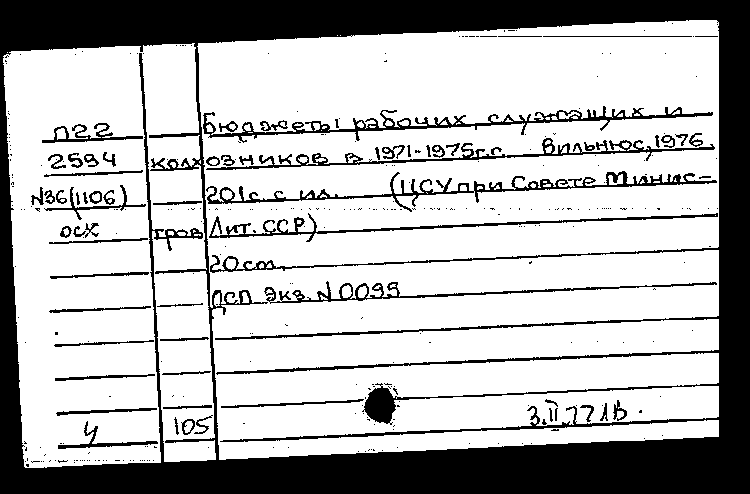 П22 Бюджеты рабочих, служащих и
2594 колхозников в 1971-1975г.г. Вильнюс, 1976.
N36(1106) 201с. с ил. (ЦСУ при Совете Минис-
осх тров Лит. ССР)
20 см.
ДСП Экз. N 0099
4 105 3.II.77 1В.